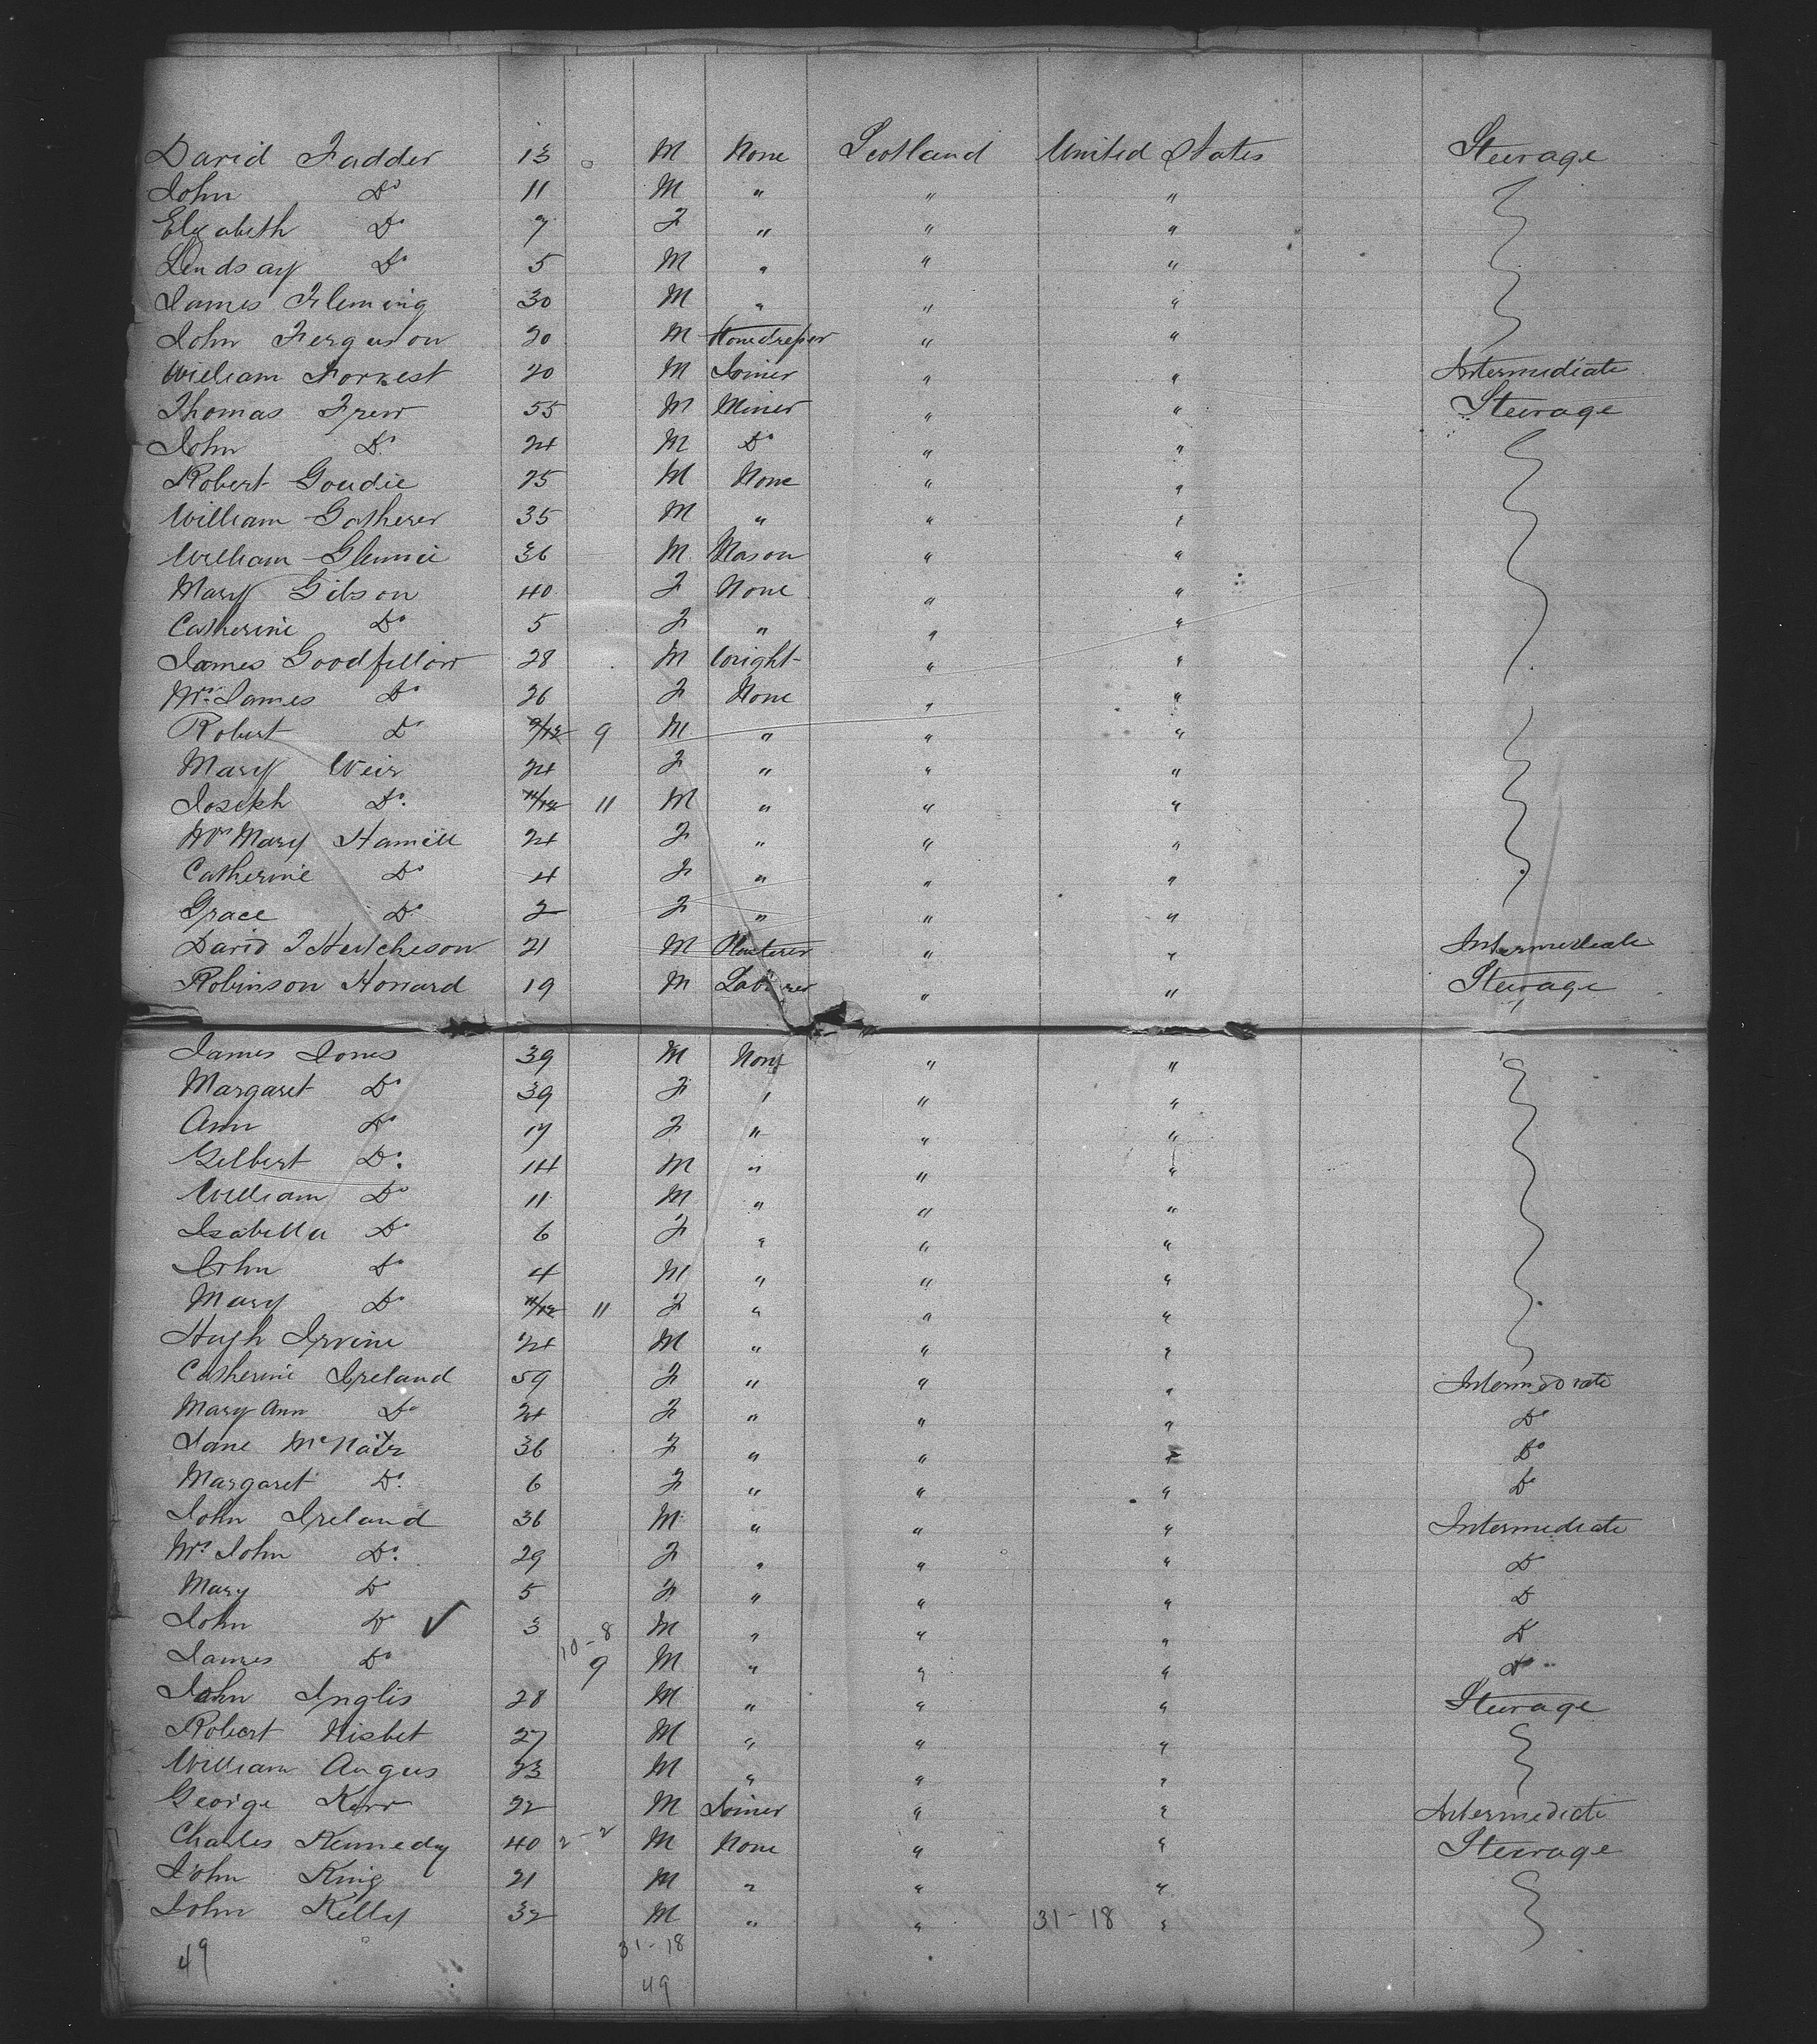 David Fadder 13 M None Scotland United States Steerage
John Do 11 M " " "
Elizabeth Do 7 F " " "
Lindsay Do 5 M " " "
James Fleming 30 M " " "
John Ferguson 20 M " "
William Forrest 20 M Joiner " " Intermediate
Thomas Frew 55 M Miner " " Steerage
John Do 24 M Do " "
Robert Goudie 25 M None " "
William Gatherer 35 M " " "
William Glennie 36 M Mason " "
Mary Gibson 40 F None " "
Catherine Do 5 F " " "
James Goodfellow 28 M Wright " "
Mrs James Do 26 F None " "
Robert Do 9/12 9 M " " "
Mary Weir 24 F " " "
Joseph Do 11/12 11 M " " "
Mrs Mary Hamill 24 F " " "
Catherine Do 4 F " " "
Grace Do 2 F " " "
David J Hutcheson 21 M Plasterer " " Intermediate
Robinson Howard 19 M Laborer " " Steerage
James Jones 39 M None " "
Margaret Do 39 F " " "
Ann Do 17 F " " "
Gilbert Do 14 M " " "
William Do 11 M " " "
Isabella Do 6 F " " "
John Do 4 M " " "
Mary Do 11/12 11 F " " "
Hugh Irvine 24 M " " "
Catherine Ireland 59 F " " " Intermediate
Mary Ann Do 24 F " " " Do
Jane McNair 36 F " " " Do
Margaret Do 6 F " " " Do
John Ireland 36 M " " " Intermediate
Mrs John Do 29 F " " " Do
Mary Do 5 F " " " Do
John Do ✓ 3 M " " " Do
10-8
James Do 9 M " " " Do
John Inglis 28 M " " " Steerage
Robert Nisbet 27 M " " "
William Angus 23 M " " "
George Kerr 22 M Joiner " " Intermediate
Charles Kennedy 40 2-2 M None " " Steerage
John King 21 M " " "
John Kelly 32 M " " 31-18 "
49 31-18
49